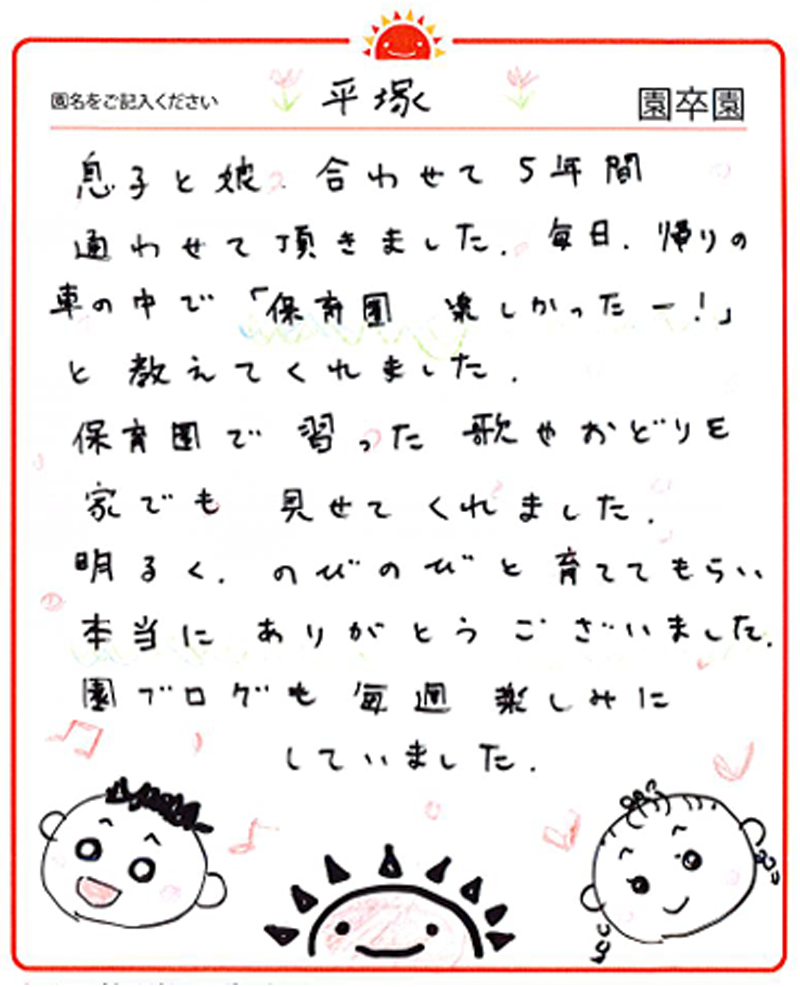 園名をご記入ください 平塚 園卒園
息子と娘、合わせて5年間
通わせて頂きました。毎日、帰りの
車の中で「保育園 楽しかったー!」
と教えてくれました。
保育園で習った歌やおどりを
家でも見せてくれました。
明るく、のびのびと育ててもらい
本当にありがとうございました。
園ブログも毎週楽しみに
していました。